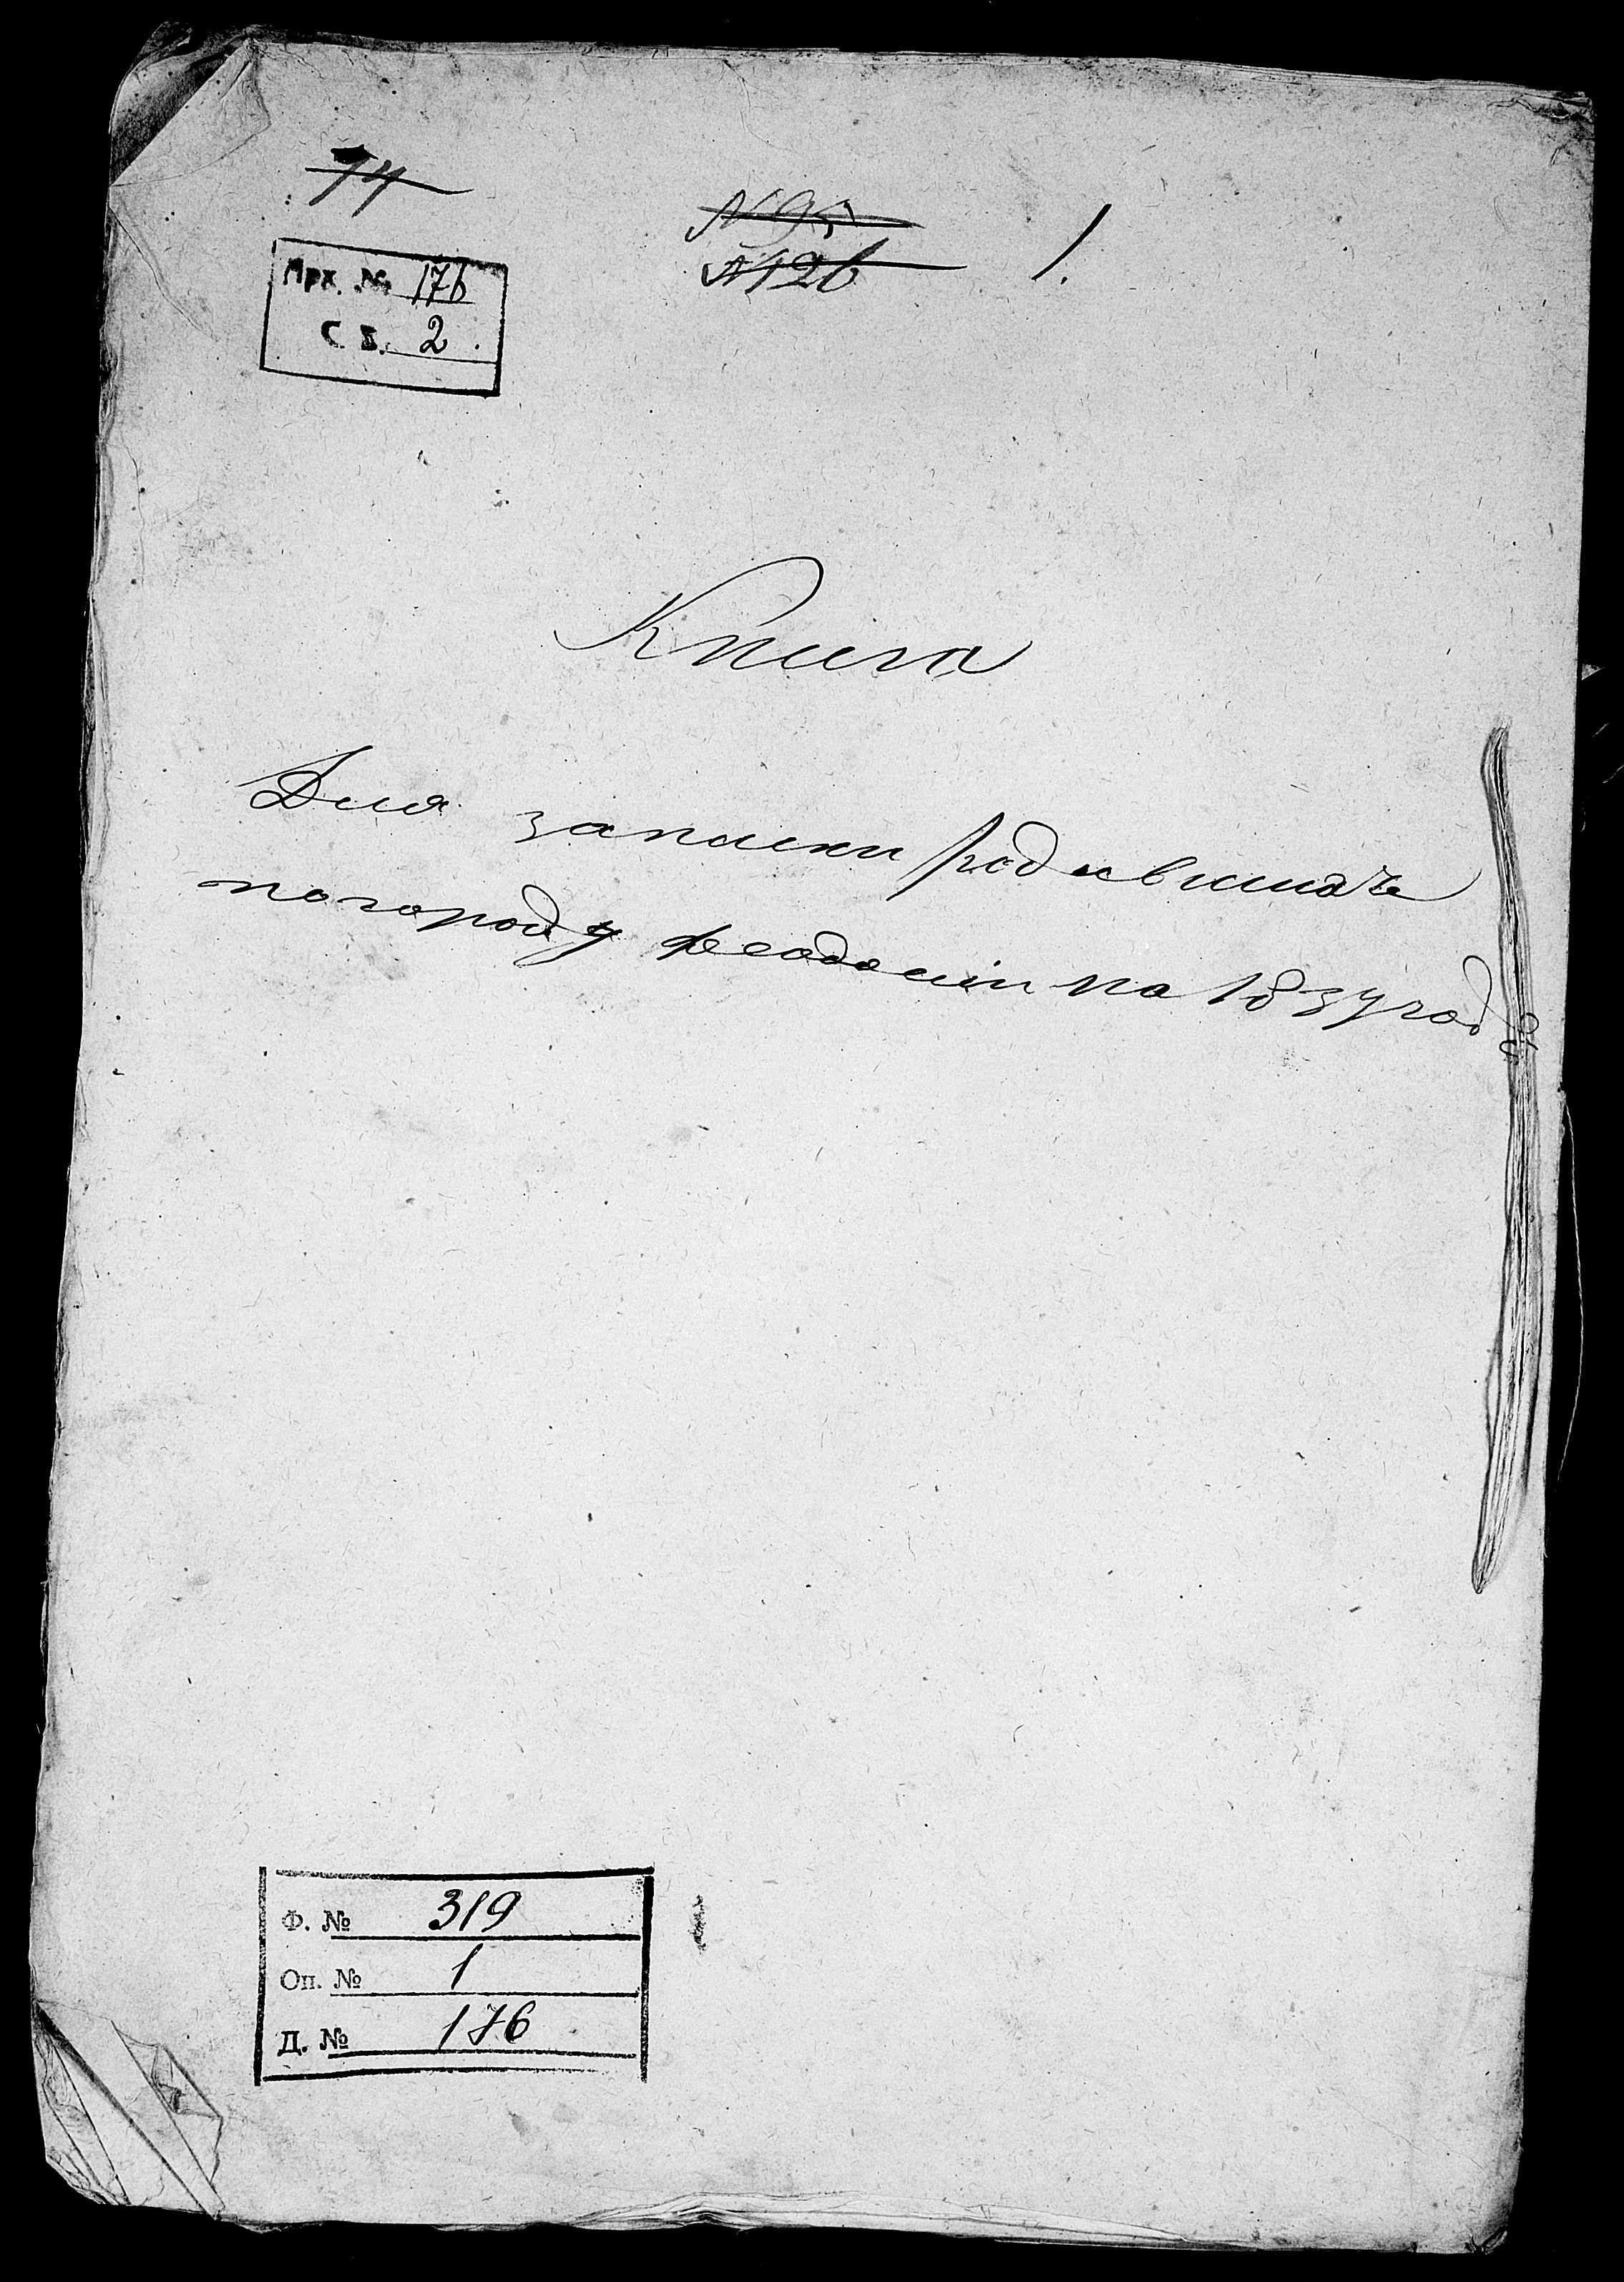 74
№ 95
№ 126
1.
Арх. № 176
Св. 2
Книга
Для записки родившихъ
по городу Феодосіи на 1837 годъ
Ф. № 319
Оп. № 1
Д. № 176